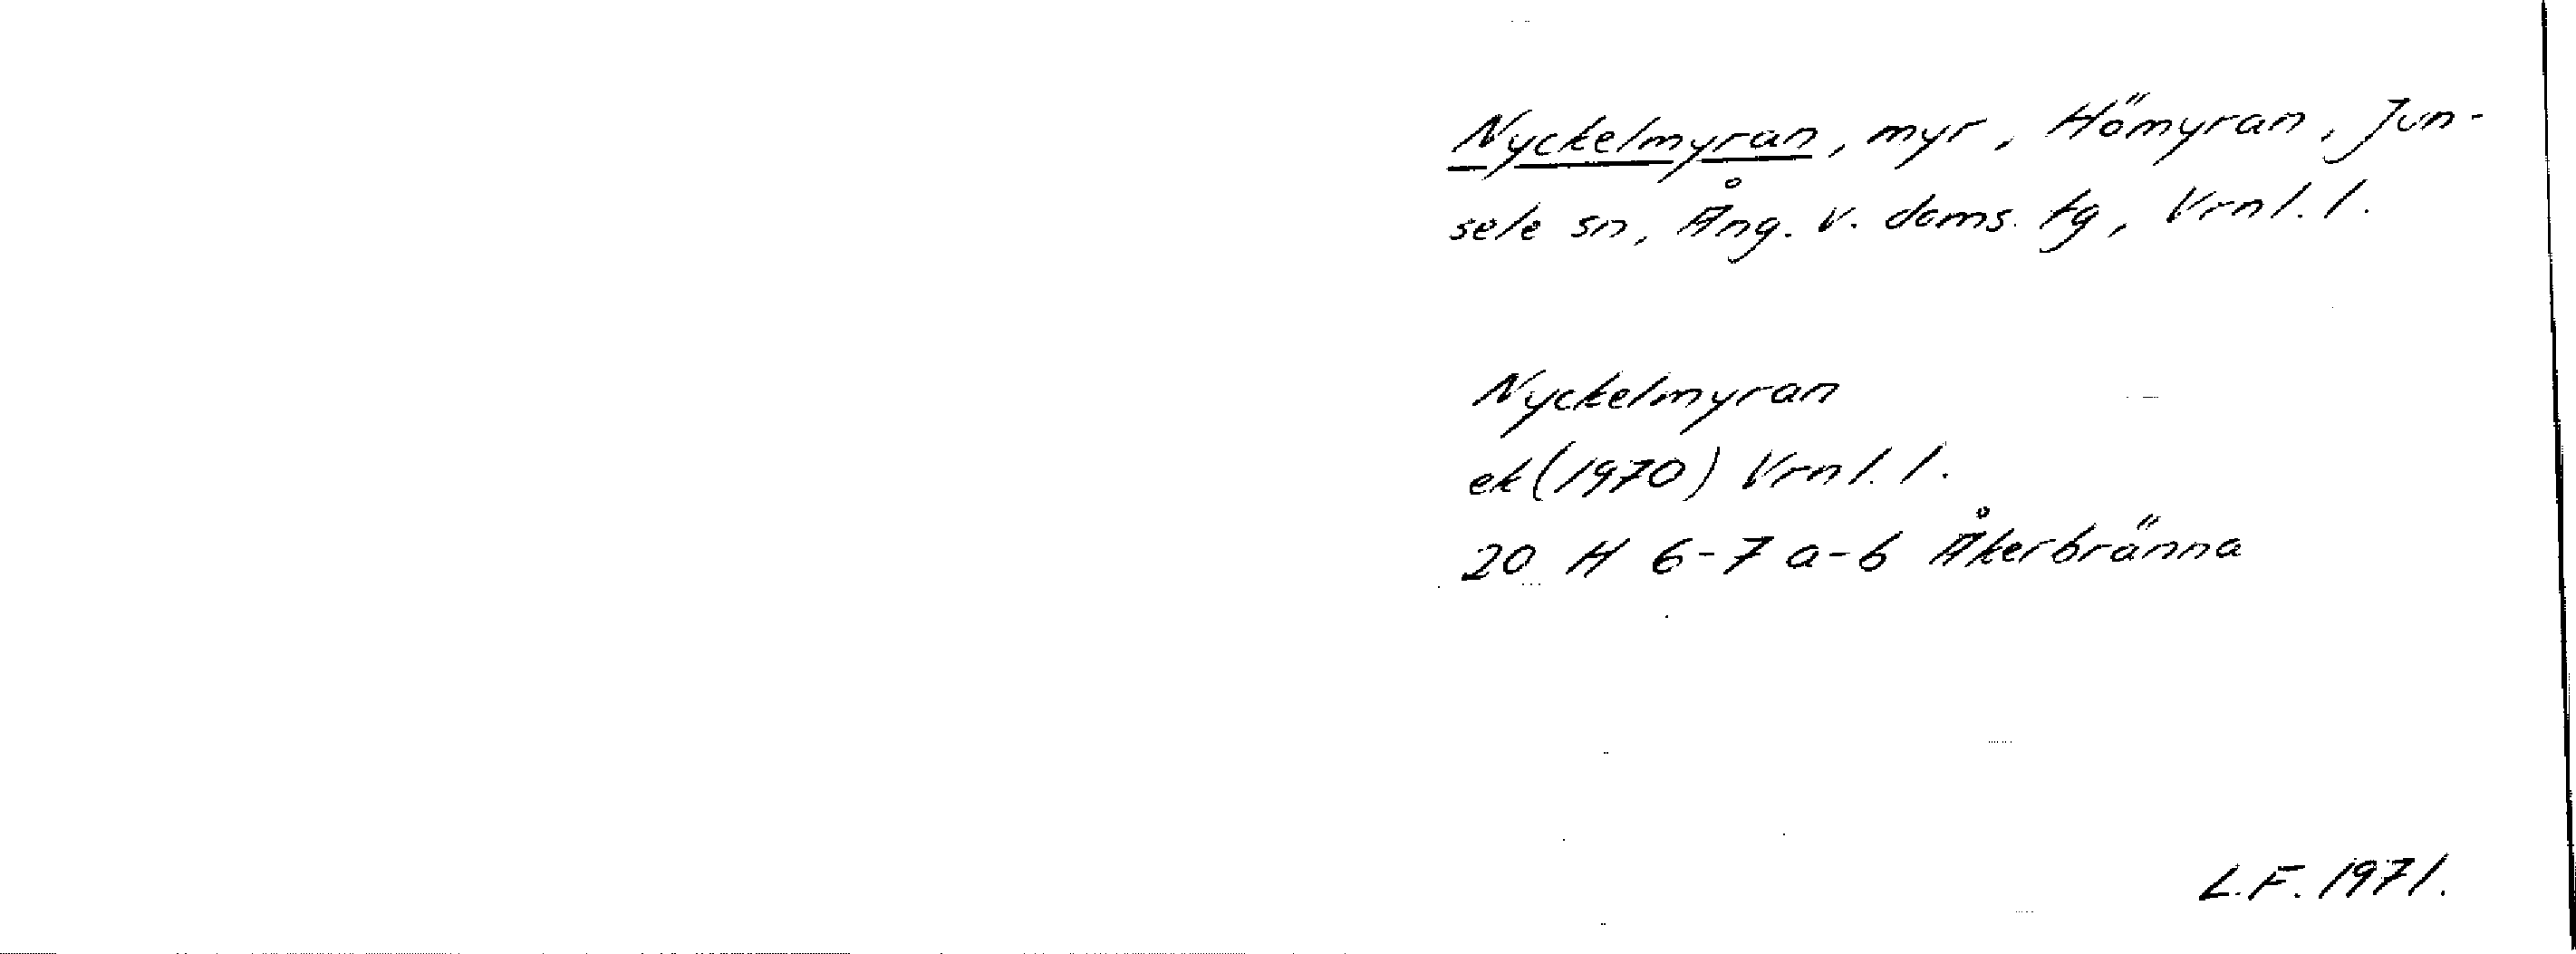 Nyckelmyran, myr, Hömyran, Jun-
sele sn, Ång. v. doms. tg, Vrnl. l.
Nyckelmyran
ek (1970) Vrnl. l.
20 H 6-7 a-b Åkerbränna
L.F. 1971.